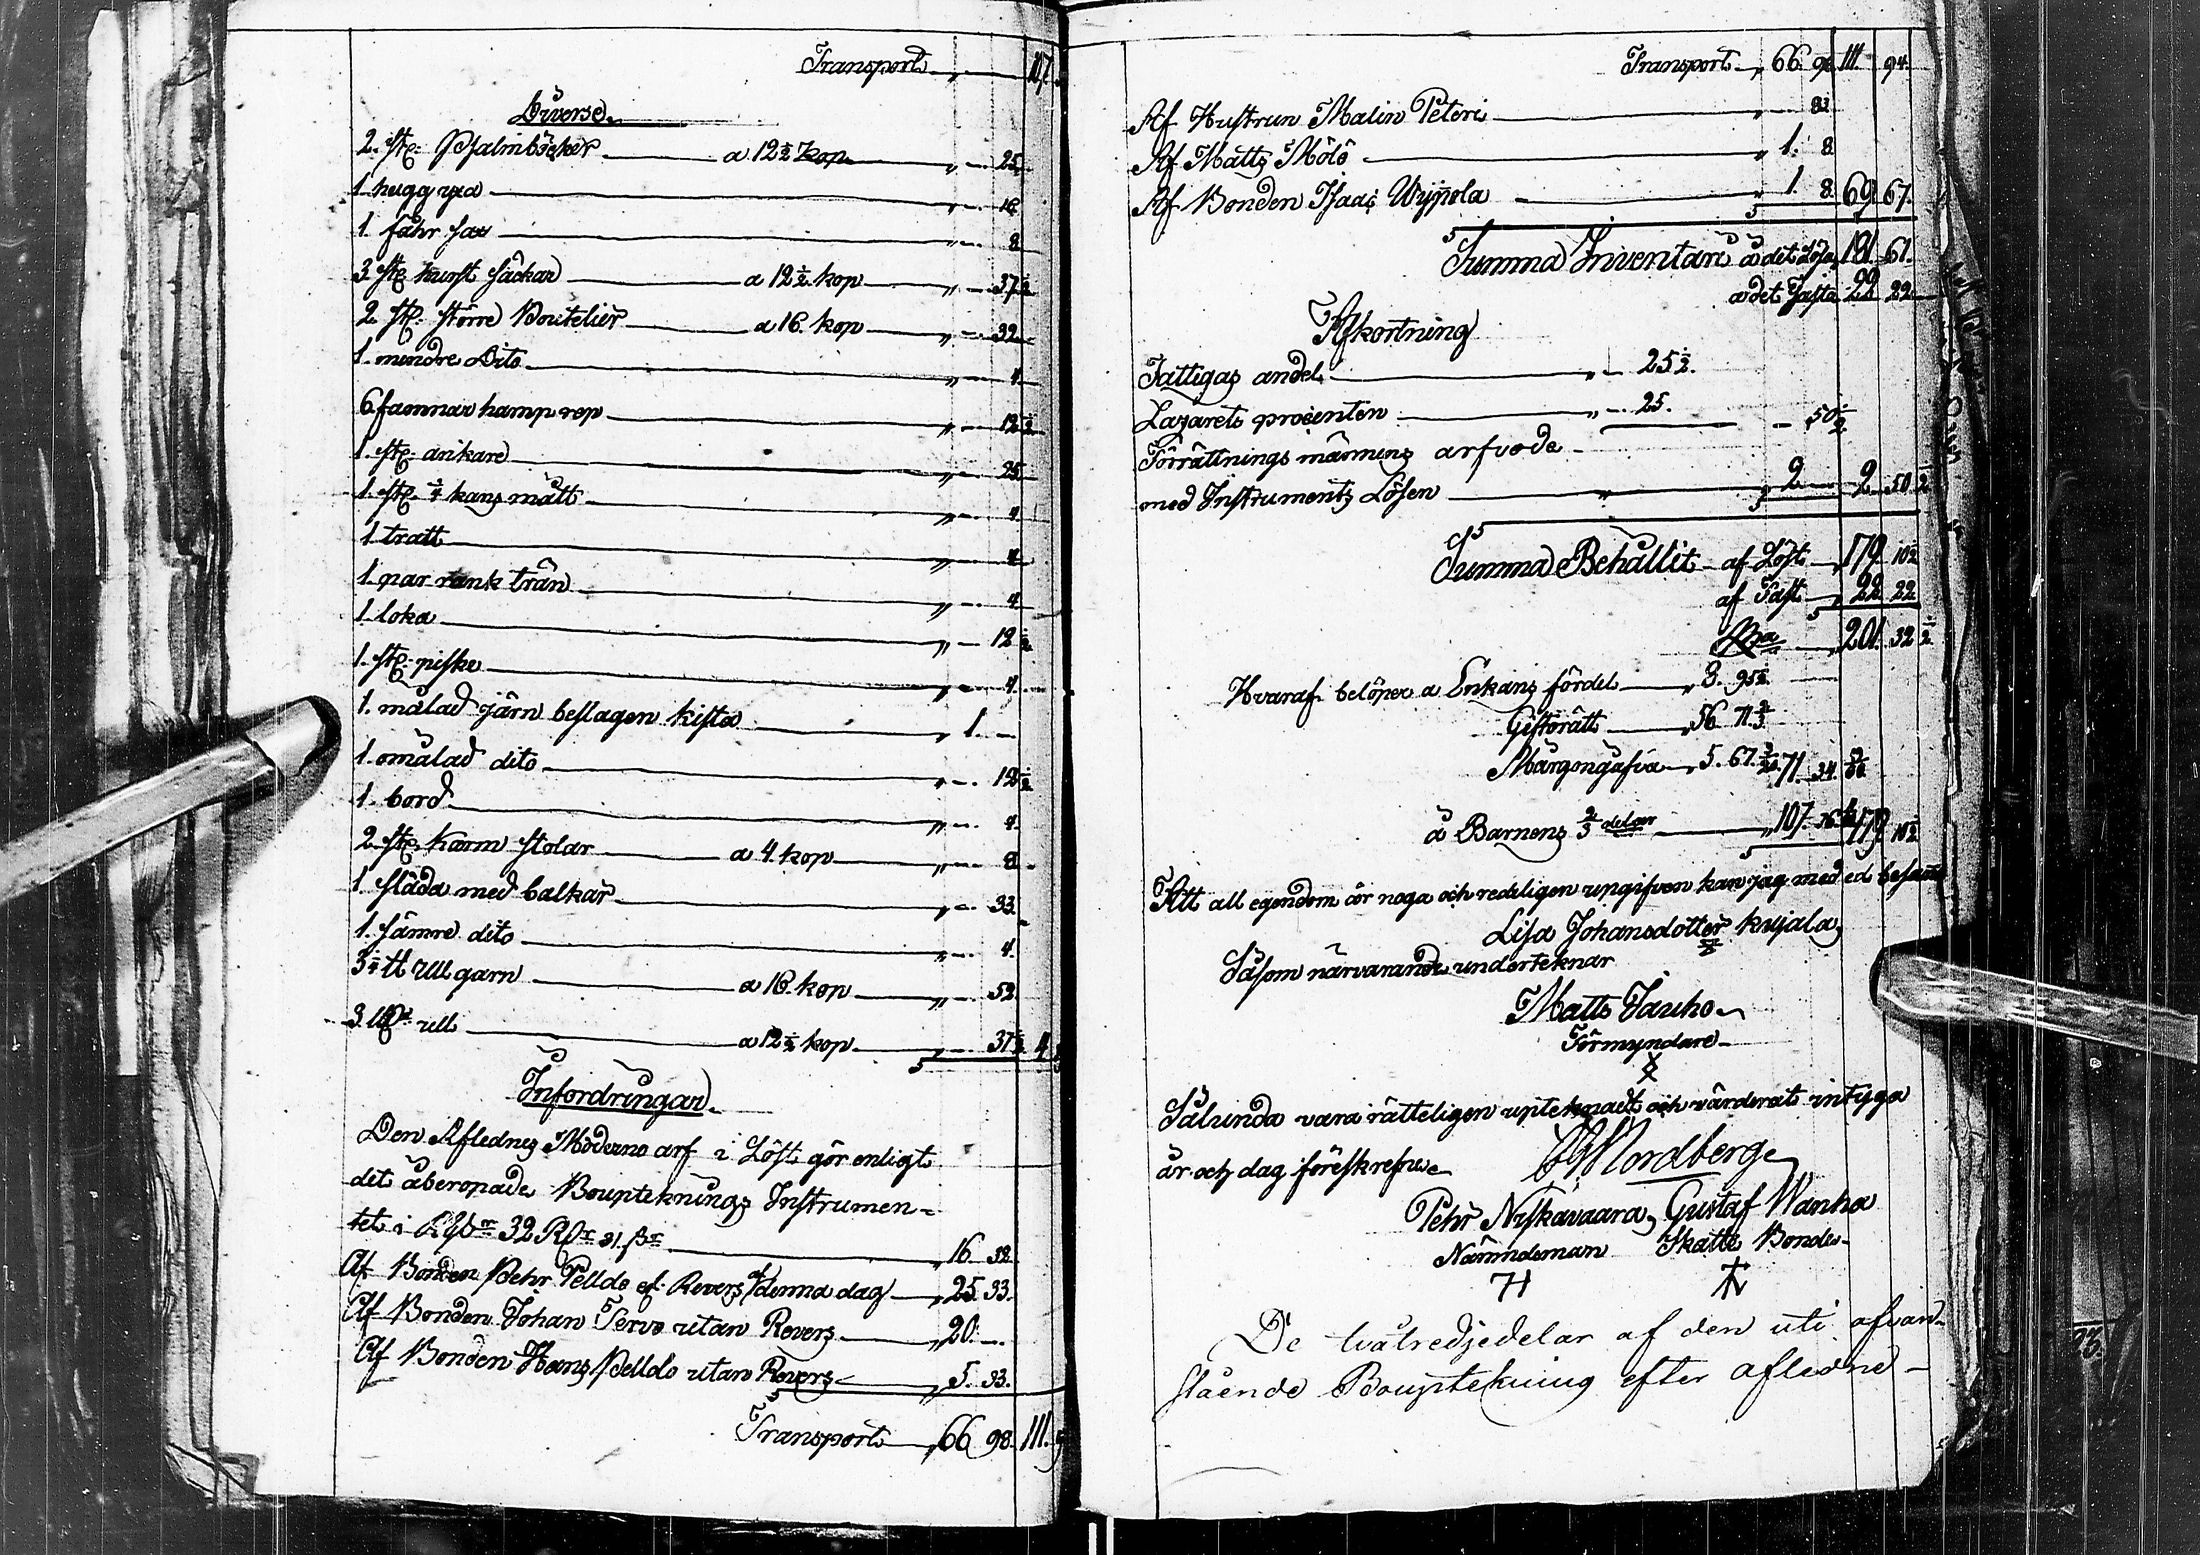 Transport " 107.
Diverse
2. st. Psalmböcker a 12½ kop " - 25.
1. hugg yxa " - 16.
1. fåhr sax " - 8.
3. st. kurst säckar a 12½ kop " - 37½
2. st. större Boutelier a 16. kop " - 32.
1. mindre Dito " - 4.
6 famnar hamp rep " - 12½
1. st. ankare " - 25.
1. st. ¾ kans mått " - 4.
1. tratt " - 4.
1. par rank trän " - 4.
1. loka " - 12½
1. st. piske " - 4.
1. målad järn beslagen kista " 1. -
1. omålad dito " - 12½
1. bord " - 4.
2. st. Karm stolar a 4. kop " - 8.
1. släda med balkar " - 33.
1. sämre dito " - 4.
3¼ tt Ull garn a 16. kop " - 52.
3. ull a 12½ kop " - 37½ 4
Infordringar.
Den Aflednes Möderne arf i Löst gör enligt
det åberopade Boupteknings Instrumen-
tet i 32 21. 16 32.
Af Bonden Pehr Velldo ef. Revers denna dag " 25. 33.
Af Bonden Johan Servo utan Revers " 20. -
Af Bonden Hans Velldo utan Revers " 5. 33.
Transport " 66 98. 111.
Transport " 66. 98 111. 94.
Af Hustrun Malin Peteri " 83
Af Matts Mölö " 1. 8.
Af Bonden Isaac Wyppola " 1. 8. 69 67.
Summa Inventarii a det Lösa 181. 61.
a det Fasta 22 22
Afkortning
Fattigas andel " - 25½.
Lazarets procenten " - 25. - 50½
Förrättnings männens arfvode
med Instruments Lösen " 2 - 2 50½
Summa Behållit af Löst " 179 10½
af Fast " 22 22
201. 32½
Hvaraf belöper a Enkans fördel " 8. 95½
Giftorätt " 56. 71⅔
Margongåfva " 5. 67. 71. 34.
a Barnens ⅔ delar " 107. 179 10½
Att all egendom är noga och redeligen uppgifven kan jag med ed besanna
Lisa Johansdotter Kujala
Såsom närvarande underteknar
Matts Jauho
Förmyndare
Sålunda vara rätteligen uptecknadt och värderat intyga
år och dag föreskrefne Nordberg
Pehr Niskavaara, Gustaf Wanha
Nämndeman Skatte Bonde
De tvåtredjedelar af den uti ofvan-
stående Bouptekning efter aflidne